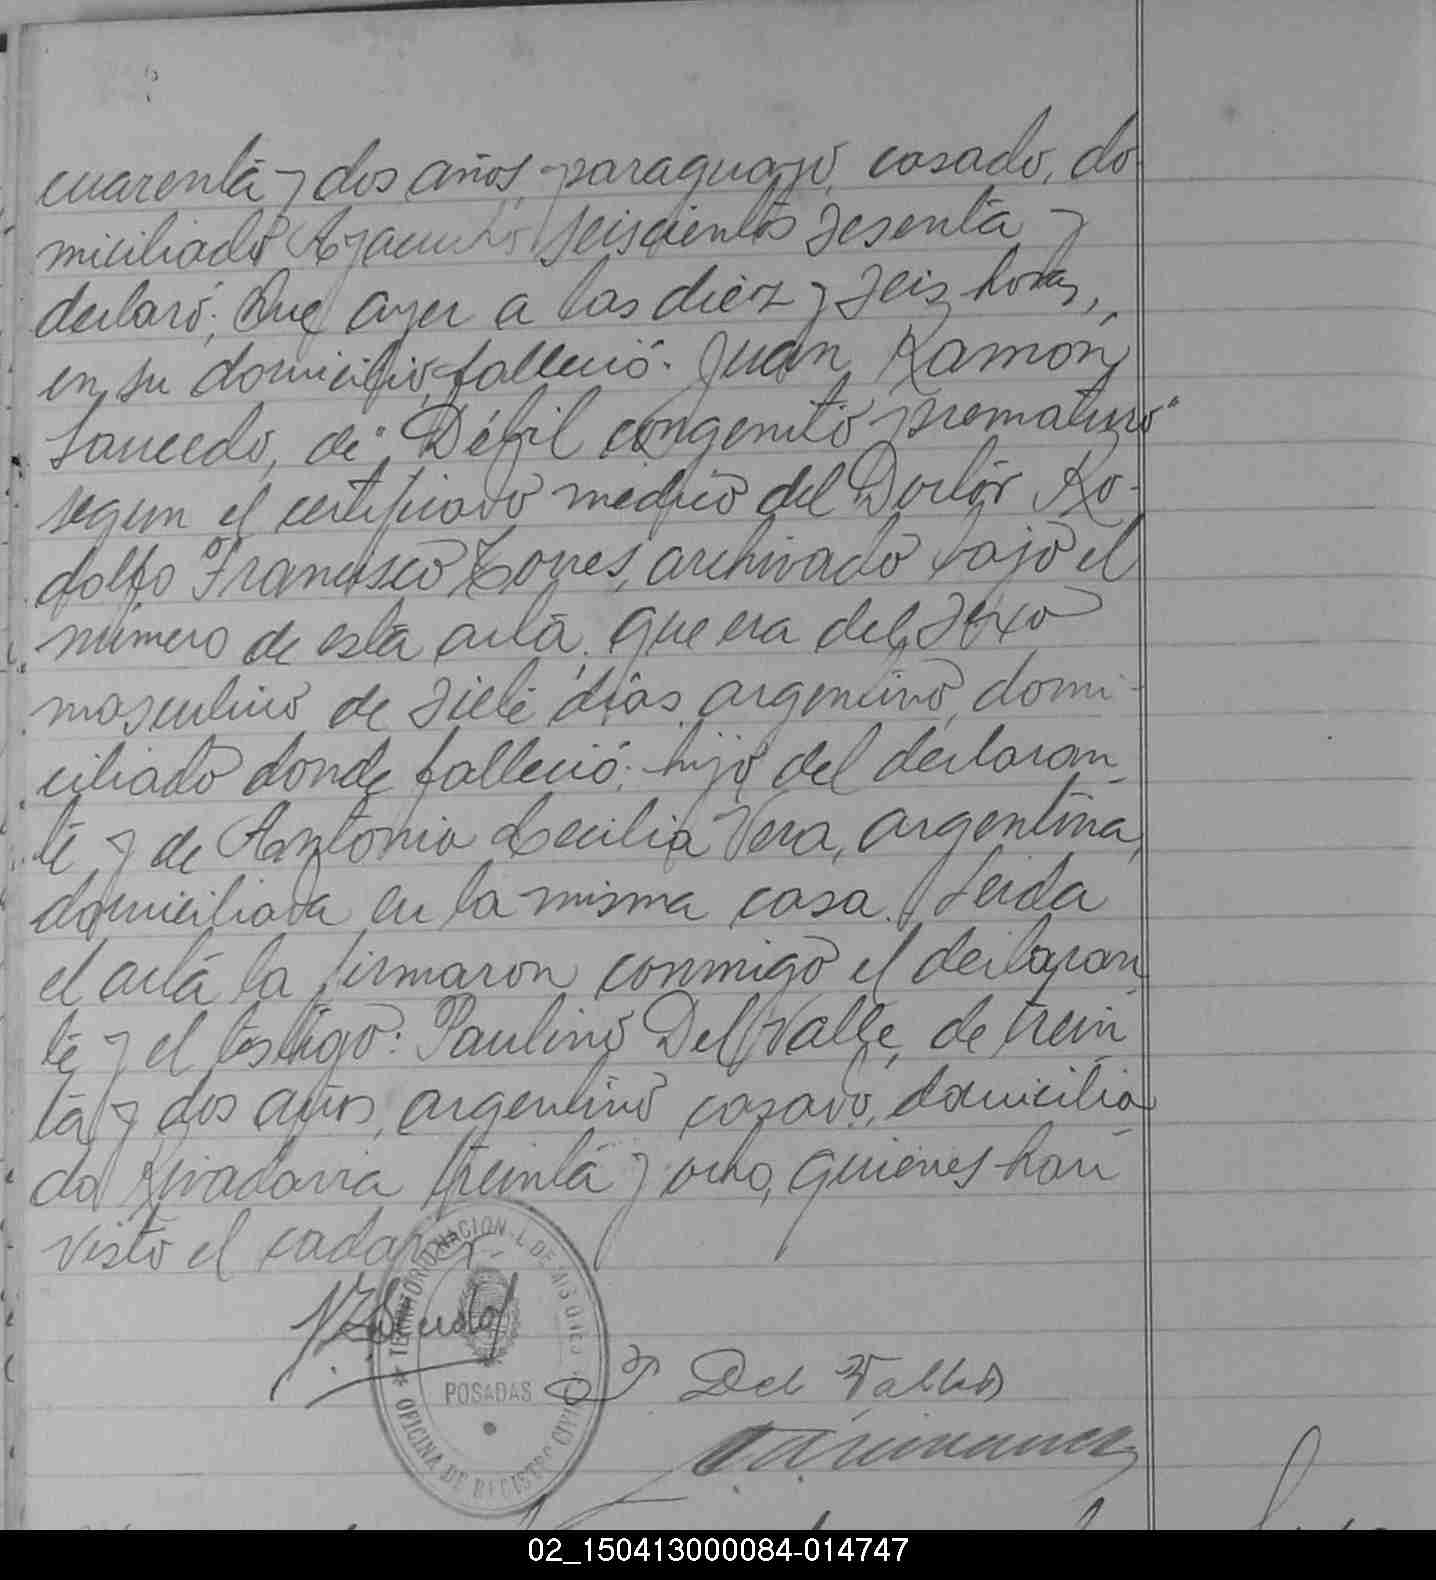 cuarenta y dos años, paraguayo, casado, do-
miciliado Ayacucho seiscientos sesenta y
declaró: Que ayer a las diez y seis horas,
en su domicilio, falleció: Juan Ramón
Saucedo, de "Débil congenito prematuro"
segun el certificado medico del Doctor Ro-
dolfo Francisco Torres, archivado bajo el
número de esta acta. que era del sexo
masculino de siete dias argentino, domi-
ciliado donde falleció: hijo del declaran-
te y de Antonia Cecilia Vera, argentina,
domiciliada en la misma casa. Leida
el acta la firmaron conmigo el declaran
te y el testigo: Paulino Del Valle, de trein
ta y dos años, argentino casado, domicilia
do Rivadavia treinta y ocho, quienes han
visto el cadaver.
TERRITORIO NACIONAL DE MISIONES
POSADAS
OFICINA DE REGISTRO CIVIL
P Del Valle
02_150413000084-014747